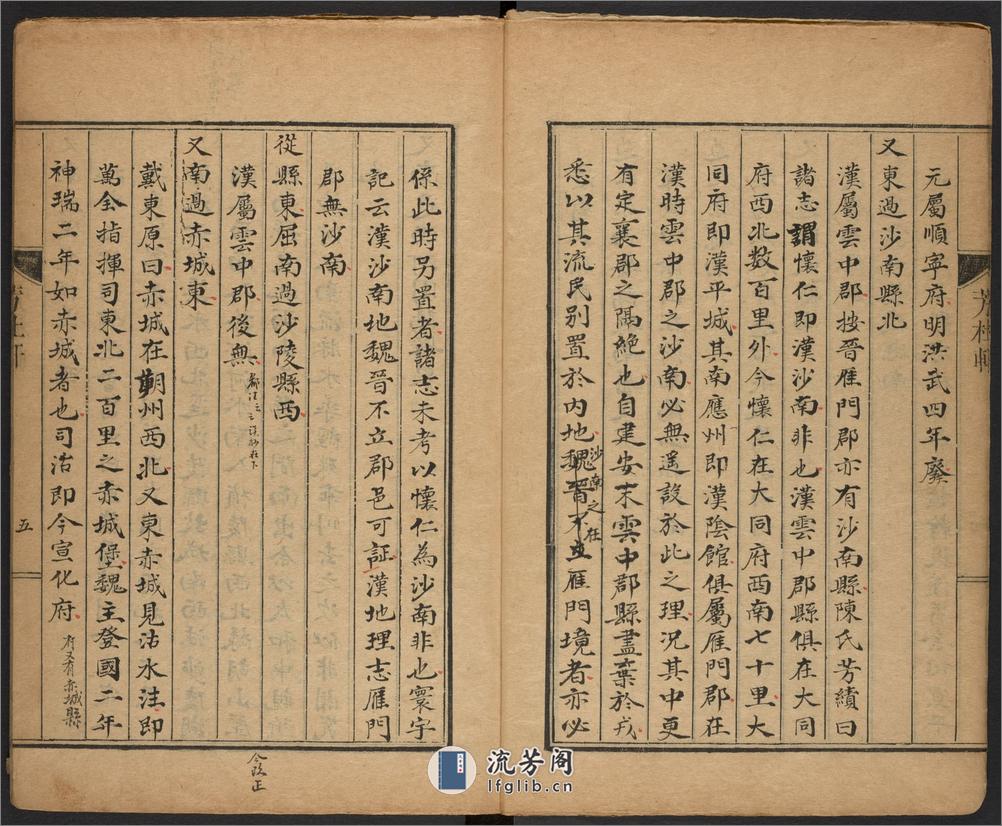 元屬順寧府明洪武四年廢
又東過沙南縣北
漢屬雲中郡按晉雁門郡亦有沙南縣陳氏芳績曰
諸志謂懷仁即漢沙南非也漢雲中郡縣俱在大同
府西北數百里外今懷仁在大同府西南七十里大
同府即漢平城其南應州即漢陰館俱屬雁門郡在
漢時雲中郡之沙南必無遥設於此之理况其中更
有定襄郡之隔絶也自建安末雲中郡縣盡棄於戎
悉以其流民别置於内地魏晋不立沙南之在雁門境者亦必
芳杜軒
係此時另置者諸志未考以懷仁為沙南非也寰宇
記云漢沙南地魏晉不立郡邑可証漢地理志雁門
郡無沙南
從縣東屈南過沙陵縣西
漢屬雲中郡後無
又南過赤城東
戴東原曰赤城在朔州西北又東赤城見沽水注即
萬全指揮司東北二百里之赤城堡魏主登國二年
神瑞二年如赤城者也司治即今宣化府府又有赤城縣
五
今改正
流芳阁
lfglib.cn